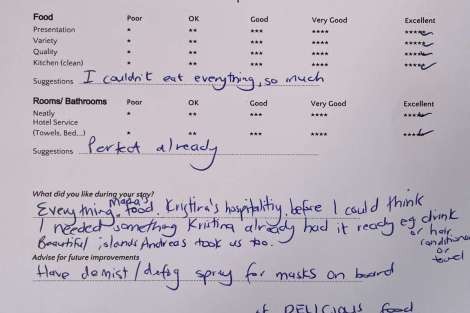 Food Poor OK Good Very Good Excellent
Presentation * ** *** **** *****
Variety * ** *** **** *****
Quality * ** *** **** *****
Kitchen (clean) * ** *** **** *****
Suggestions I couldn't eat everything, so much
Rooms/ Bathrooms Poor OK Good Very Good Excellent
Neatly * ** *** **** *****
Hotel Service
(Towels, Bed...) * ** *** **** *****
Suggestions Perfect already
What did you like during your stay?
Everything. Maria's food. Kristina's hospitality. before I could think
I needed something Kristina already had it ready eg drink
or hair
conditioner
or
towel
Beautiful islands Andreas took us too.
Advise for future improvements
Have demist / defog spray for masks on board
of DELICIOUS food